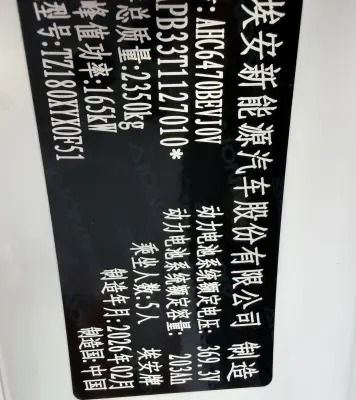 埃安新能源汽车股份有限公司 制造
: AHC6470BEVJ0V 动力电池系统额定电压: 369.3V
PB33T1127010* 动力电池系统额定容量: 203Ah
总质量:2350kg 乘坐人数:5人 埃安牌
峰值功率:165kW 制造年月:2026年02月
型号:TZ180XYX0F51 制造国:中国